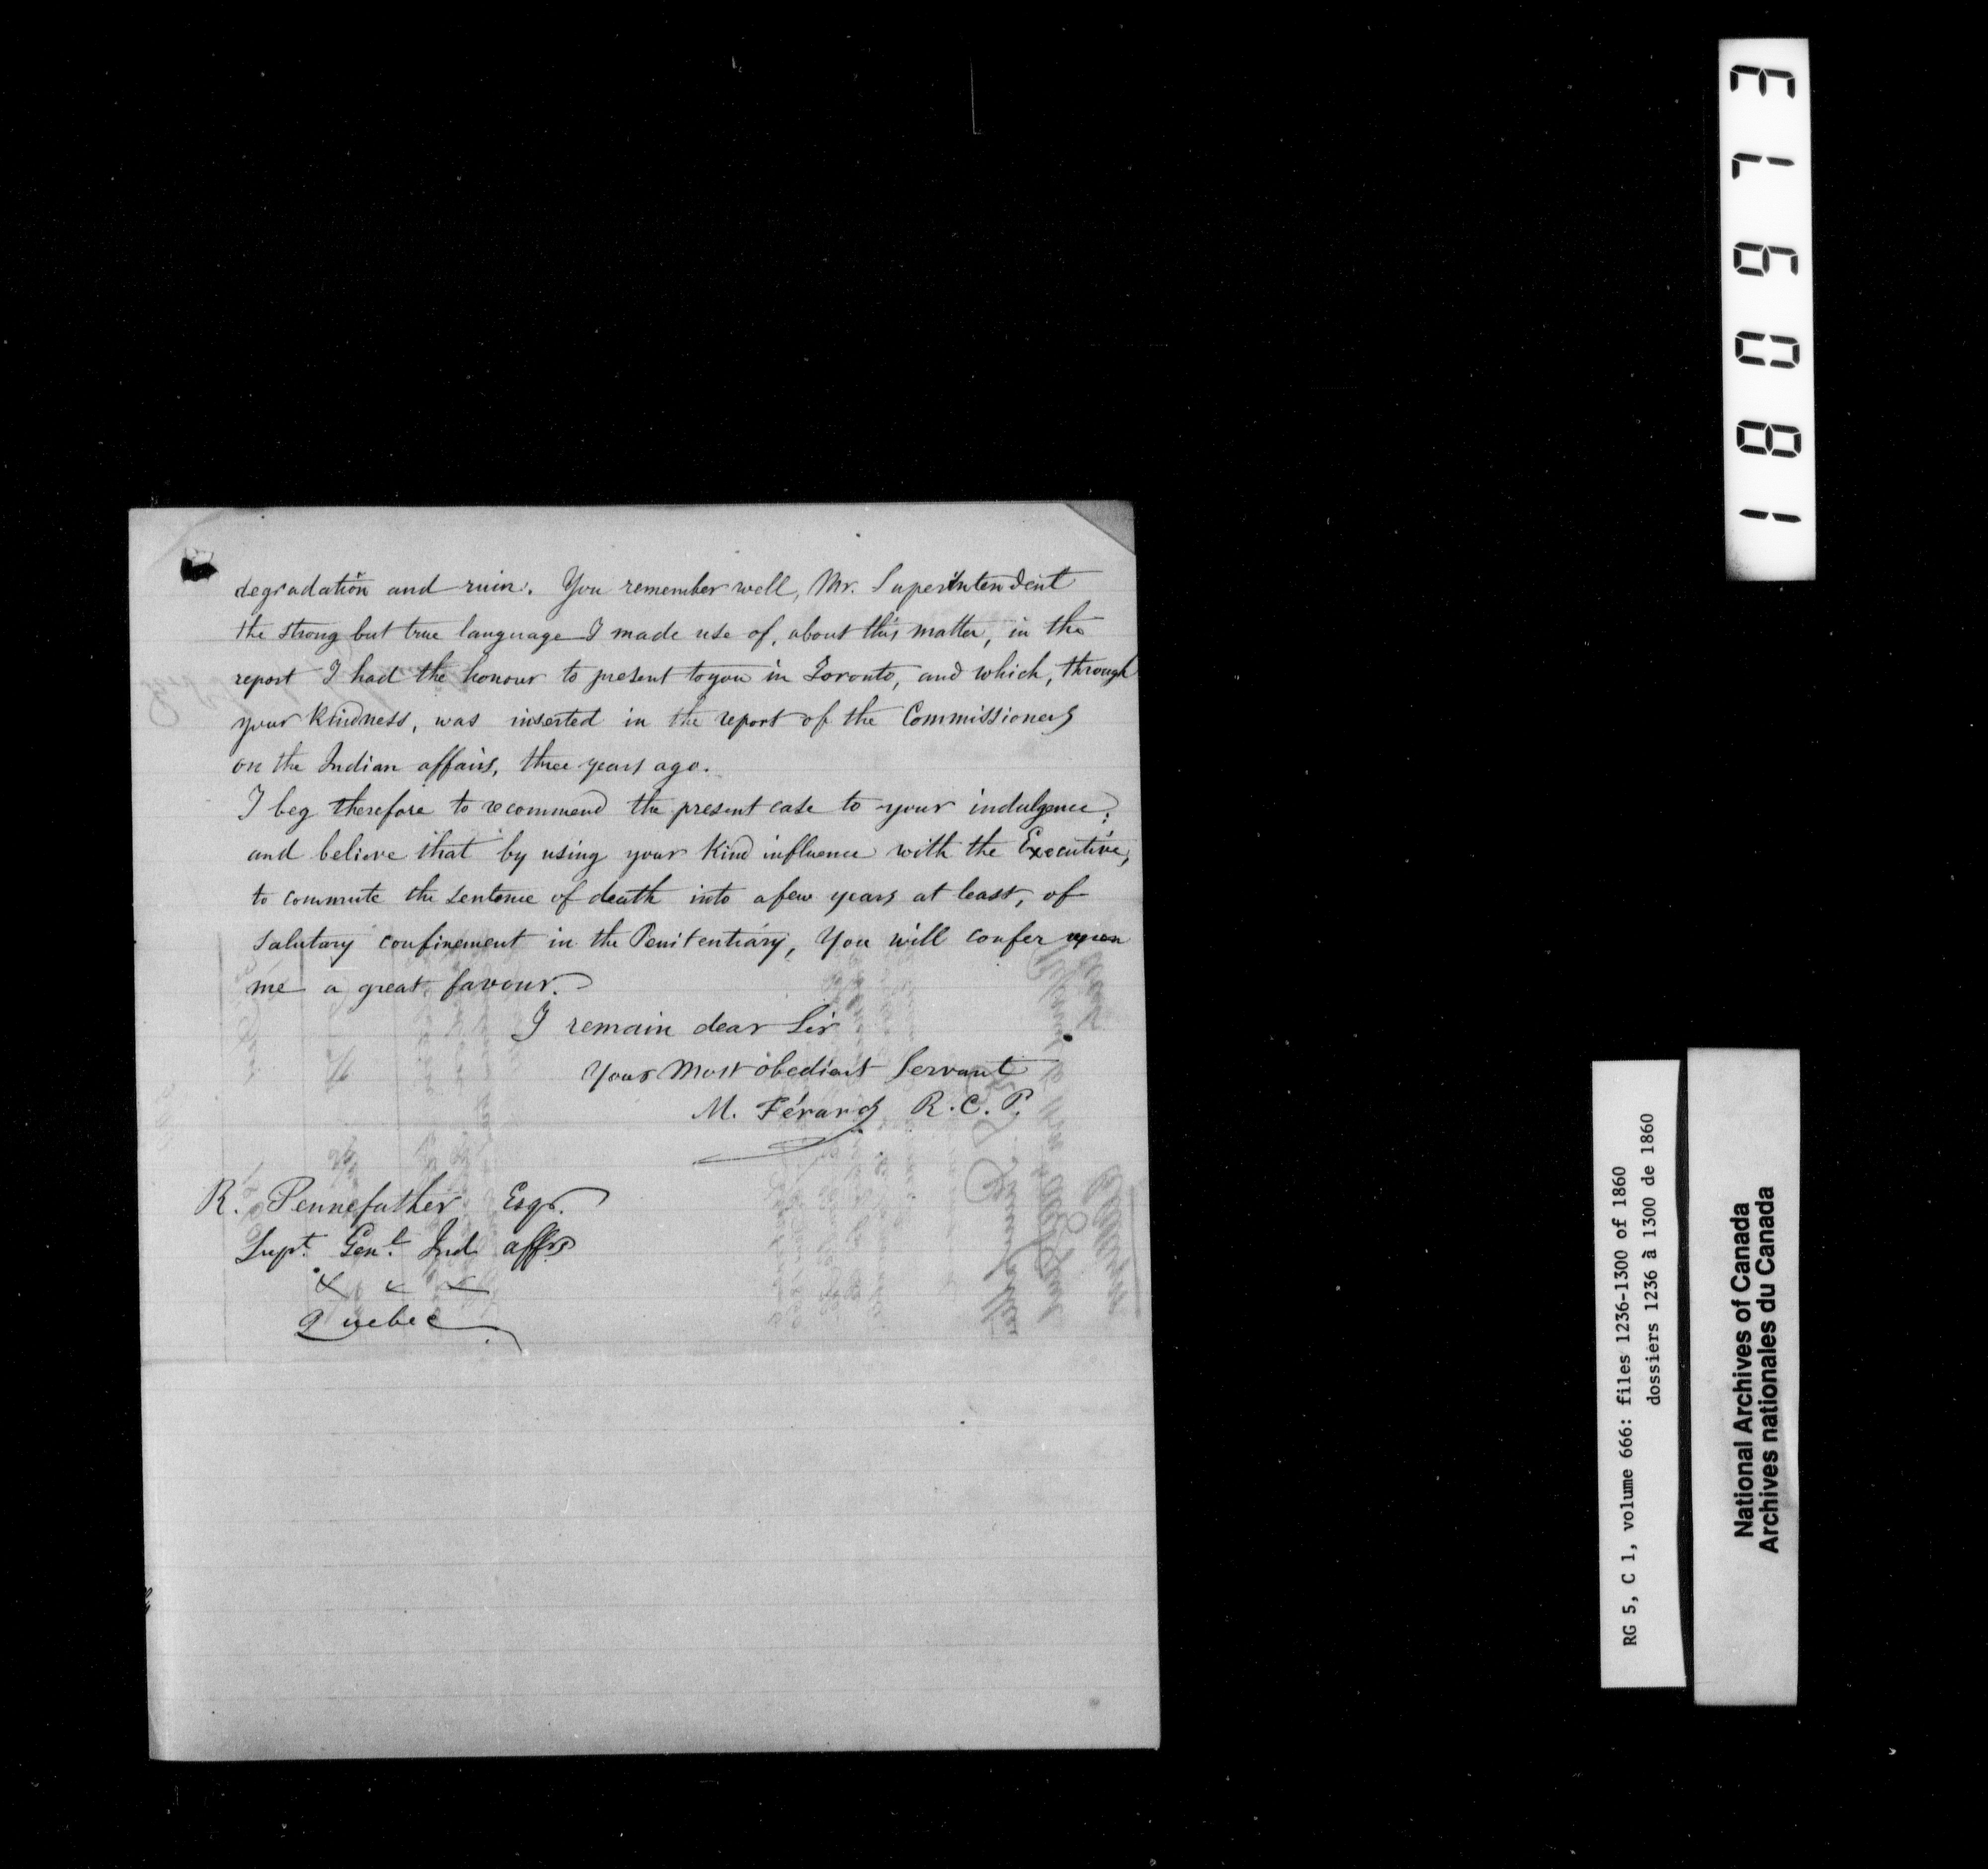 degradation and ruin. You remember well, Mr. Superintendent
the strong but true language I made use of, about this matter, in the
report I had the honour to present to you in Toronto, and which, through
your kindness, was inserted in the report of the Commissioners
on the Indian affairs, three years ago.
I beg therefore to recommend the present case to your indulgence;
and believe that by using your kind influence with the Executive,
to commute the sentence of death into a few years at least, of
salutary confinement in the Penitentiary, You will confer upon
me a great favour.
I remain dear Sir
Your Most obedient Servant
M. Férard R.C.P.
R. Pennefather Esqr.
Supt. Genl. Ind. affrs
Quebec
180973
RG 5, C 1, volume 666: files 1236-1300 of 1860
dossiers 1236 à 1300 de 1860
National Archives of Canada
Archives nationales du Canada